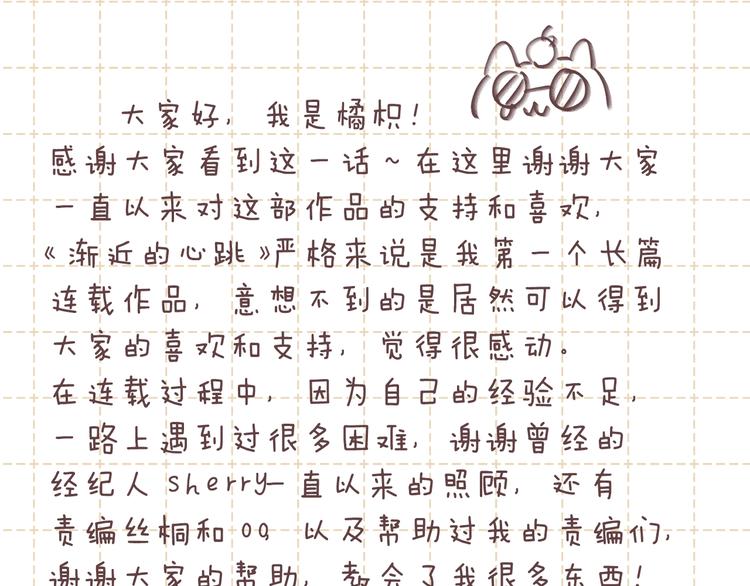 大家好，我是橘枳！
感谢大家看到这一话～在这里谢谢大家
一直以来对这部作品的支持和喜欢，
《渐近的心跳》严格来说是我第一个长篇
连载作品，意想不到的是居然可以得到
大家的喜欢和支持，觉得很感动。
在连载过程中，因为自己的经验不足，
一路上遇到过很多困难，谢谢曾经的
经纪人sherry一直以来的照顾，还有
责编丝桐和OQ 以及帮助过我的责编们，
谢谢大家的帮助，教会了我很多东西！